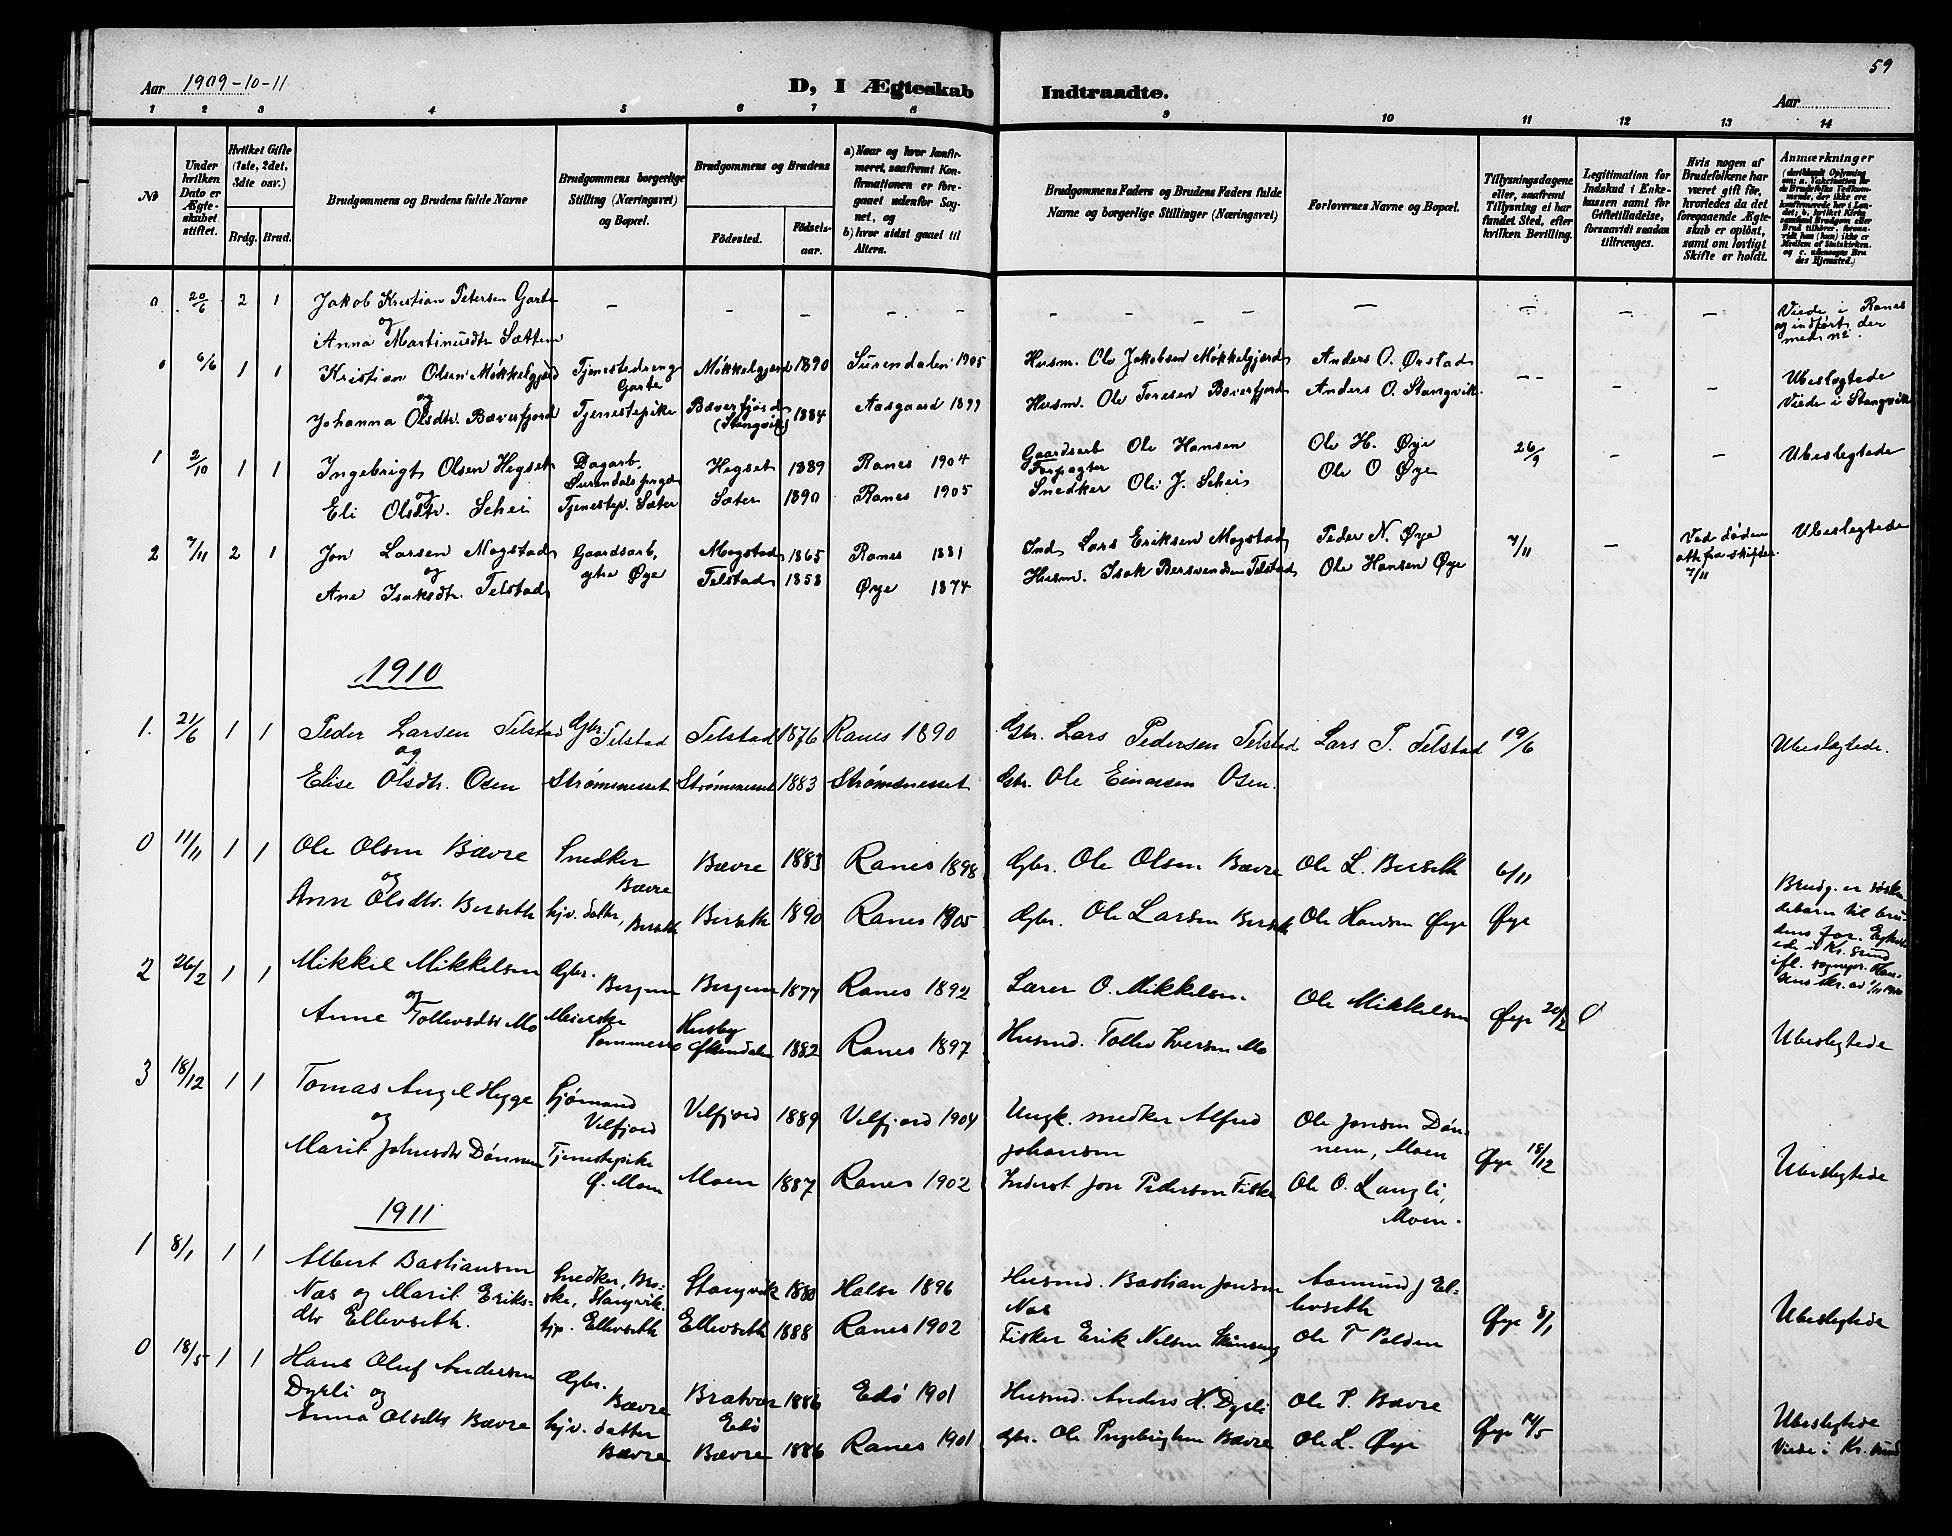 59
Aar 1909-10-11
D, I Ægteskab Indtraadte.
Aar
1 2 3 4 5 6 7 8 9 10 11 12 13 14
No
Under hvilken Dato er Ægteskabet stiftet.
Hvilket Gifte (1ste, 2det, 3die osv.)
Brdg. Brud.
Brudgommens og Brudens fulde Navne
Brudgommens borgerlige Stilling (Næringsvei) og Bopæl.
Brudgommens og Brudens
Fødested.
Fødselsaar.
a) Naar og hvor konfirmeret, saafremt Konfirmationen er foregaaet udenfor Sognet, og
b) hvor sidst gaaet til Alters.
Brudgommens Faders og Brudens Faders fulde Navne og borgerlige Stillinger (Næringsvei)
Forlovernes Navne og Bopæl.
Tillysningsdagene eller, saafremt Tillysning ei har fundet Sted, efter hvilken Bevilling.
Legitimation for Indskud i Enkekassen samt for Giftetilladelse, forsaavidt saadan tiltrænges.
Hvis nogen af Brudefolkene har været gift før, hvorledes da det foregaaende Ægteskab er opløst, samt om lovligt Skifte er holdt.
Anmærkninger
0 20/6 2 1 Jakob Kristian Petersen Garte - - - - - - - - - - - Viede i Ranes
og og indført der
Anna Martinusdtr Sættem med nr.
0 6/6 1 1 Kristian Olsen Møkkelgjerd Tjenestedreng Garte Møkkelgjerd 1890 Surendalen 1905 Husm. Ole Jakobsen Møkkelgjerd Anders O. Ørstad -- - - Ubeslegtede
og
Johanna Olsdtr. Bæverfjord Tjenestepike Bæverfjord (Stangvik) 1884 Aasgaard 1899 Husm. Ole Toresen Bæverfjord Anders O. Stangvik Viede i Stangvik
1 2/10 1 1 Ingebrigt Olsen Hegset Dagarb. Hegset 1889 Ranes 1904 Gaardsarb Forpagter Ole Hansen Ole H. Øye 26/9 - - Ubeslegtede
og
Eli Olsdtr. Schei Tjenestep. Sæter Sæter 1890 Ranes 1905 Snedker Ole J. Schei Ole O Øye
2 7/11 2 1 Jon Larsen Mogstad Gaardsarb, Mogstad 1865 Ranes 1881 Ind. Lars Eriksen Mogstad Peder N. Øye 7/11 - Ved døden Ubeslegtede
og ytre Øye att fra skifter
Ane Isaksdtr. Telstad Telstad 1858 Øye 1874 Husm. Isak Bersvendsen Telstad Ole Hansen Øye 7/11
1910
1. 21/6 1 1 Peder Larsen Telstad Gbr. Telstad Telstad 1876 Ranes 1890 Gbr. Lars Pedersen Telstad Lars P. Telstad 19/6 Ubeslegtede.
og
Elise Olsdtr. Osen Strømsnesset Strømsnesset 1883 Strømsnesset Gbr. Ole Einarsen Osen.
0 11/11 1 1 Ole Olsen Bævre Snedker Bævre Bævre 1883 Ranes 1898 Gbr. Ole Olsen Bævre Ole L. Berseth 6/11 Brudg. er søsken-
og debarn til bru-
Anne Olsdtr. Berseth hjv. datter, Berseth Berseth 1890 Ranes 1905 Gbr. Ole Larsen Berseth Ole Hansen Øye Øye dens far.
2 26/2 1 1 Mikkil Mikkelsen Gbr. Bergem Bergem 1877 Ranes 1892 Lærer O. Mikkelsen. Ole Mikkelsen Øye 20/2 0
og
Anne Tollevsdtr Mo Meierske Husby 1882 Ranes 1897 Husmd. Tollev Iversen Mo Ubeslegtede
3 18/12 1 1 Tomas Angel Hegge Sjømand Velfjord Velfjord 1889 Velfjord 1904 Ungk. snedker Alfred Johansen Ole Jonsen Dønnem, Moen Øye 18/12 Ubeslegtede
og
Marit Johnsdtr Dønnem Tjenestepike Ø. Moen Moen 1887 Ranes 1902 Inderst Jon Pedersen Fiske Ole O. Langli, Moen.
1911
1 8/1 1 1 Albert Bastiansen Snedker, Bro- Stangvik 1880 Halse 1896 Husmd. Bastian Jonsen Aamund J El-
Nas og Marit Eriks- ske, Stangvik. Nas levseth Øye 8/1 Ubeslegtede
dtr Ellevseth. hjp. Ellevseth Ellevseth 1888 Ranes 1902 Fisker Erik Nelsen Ole T Polden
0 18/5 1 1 Hans Oluf Andersen Gbr. Bævre Bratvær Edø 1886 Edø 1901 Husmd. Anders H. Dyrli Ole P. Bævre
Dyrli og
Anna Olsdtr Bævre hjv. datter Bævre Bævre 1886 Ranes 1901 Gbr. Ole Ingebrigtsen Bævre Ole L. Øye Øye 14/5 Ubeslegtede
Viede i Kr. sund